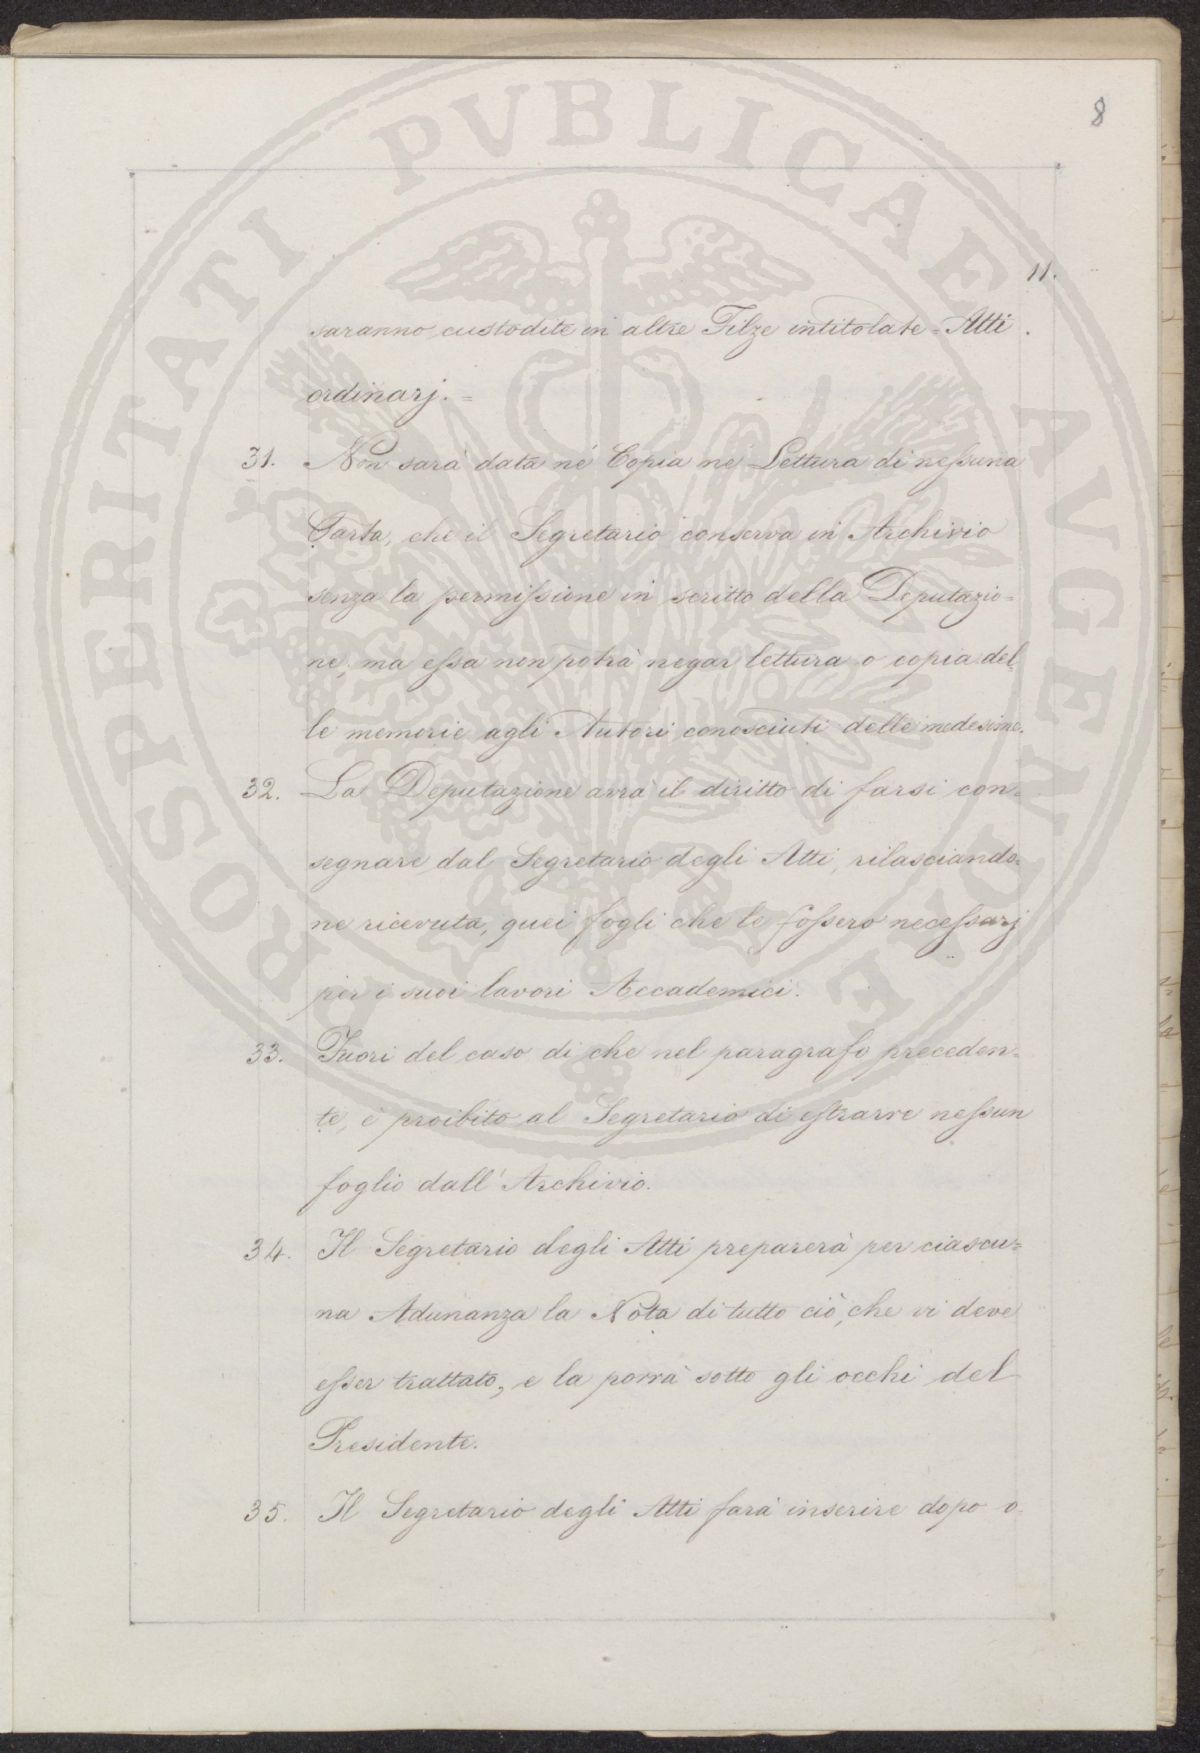 8
11.
saranno custodite in altre Filze intitolate = Atti
ordinarj. =
31. Non sarà data nè Copia nè Lettura di nessuna
Carta, che il Segretario conserva in Archivio
senza la permissione in scritto della Deputazio=
ne, ma essa non potrà negar lettura o copia del=
le memorie agli Autori conosciuti delle medesime.
32. La Deputazione avrà il diritto di farsi con=
segnare dal Segretario degli Atti, rilasciando=
ne ricevuta, quei fogli che le fossero necessarj
per i suoi lavori Accademici.
33. Fuori del caso di che nel paragrafo preceden=
te, è proibito al Segretario di estrarre nessun
foglio dall' Archivio.
34. Il Segretario degli Atti preparerà per ciascu=
na Adunanza la Nota di tutto ciò, che vi deve
esser trattato, e la porrà sotto gli occhi del
Presidente.
35. Il Segretario degli Atti farà inserire dopo o
PROSPERITATI PVBLICAE AVGENDAE